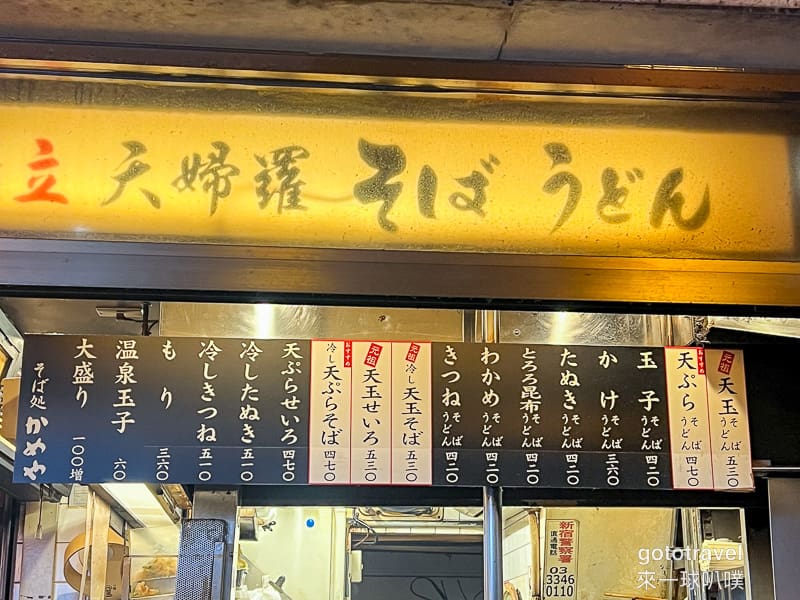 立 天婦羅 そば うどん
元祖 天玉 そば うどん 五三〇
おすすめ 天ぷら そば うどん 四七〇
玉子 そば うどん 四二〇
かけ そば うどん 三六〇
たぬき そば うどん 四二〇
とろろ昆布 そば うどん 四二〇
わかめ そば うどん 四二〇
きつね そば うどん 四二〇
元祖 冷し天玉そば 五三〇
元祖 天玉せいろ 五三〇
おすすめ 冷し天ぷらそば 四七〇
天ぷらせいろ 四七〇
冷したぬき 五一〇
冷しきつね 五一〇
もり 三六〇
温泉玉子 六〇
大盛り 一〇〇増
そば処 かめや
新宿警察署
直通電話
03
3346
0110
gototravel
來一球叭噗